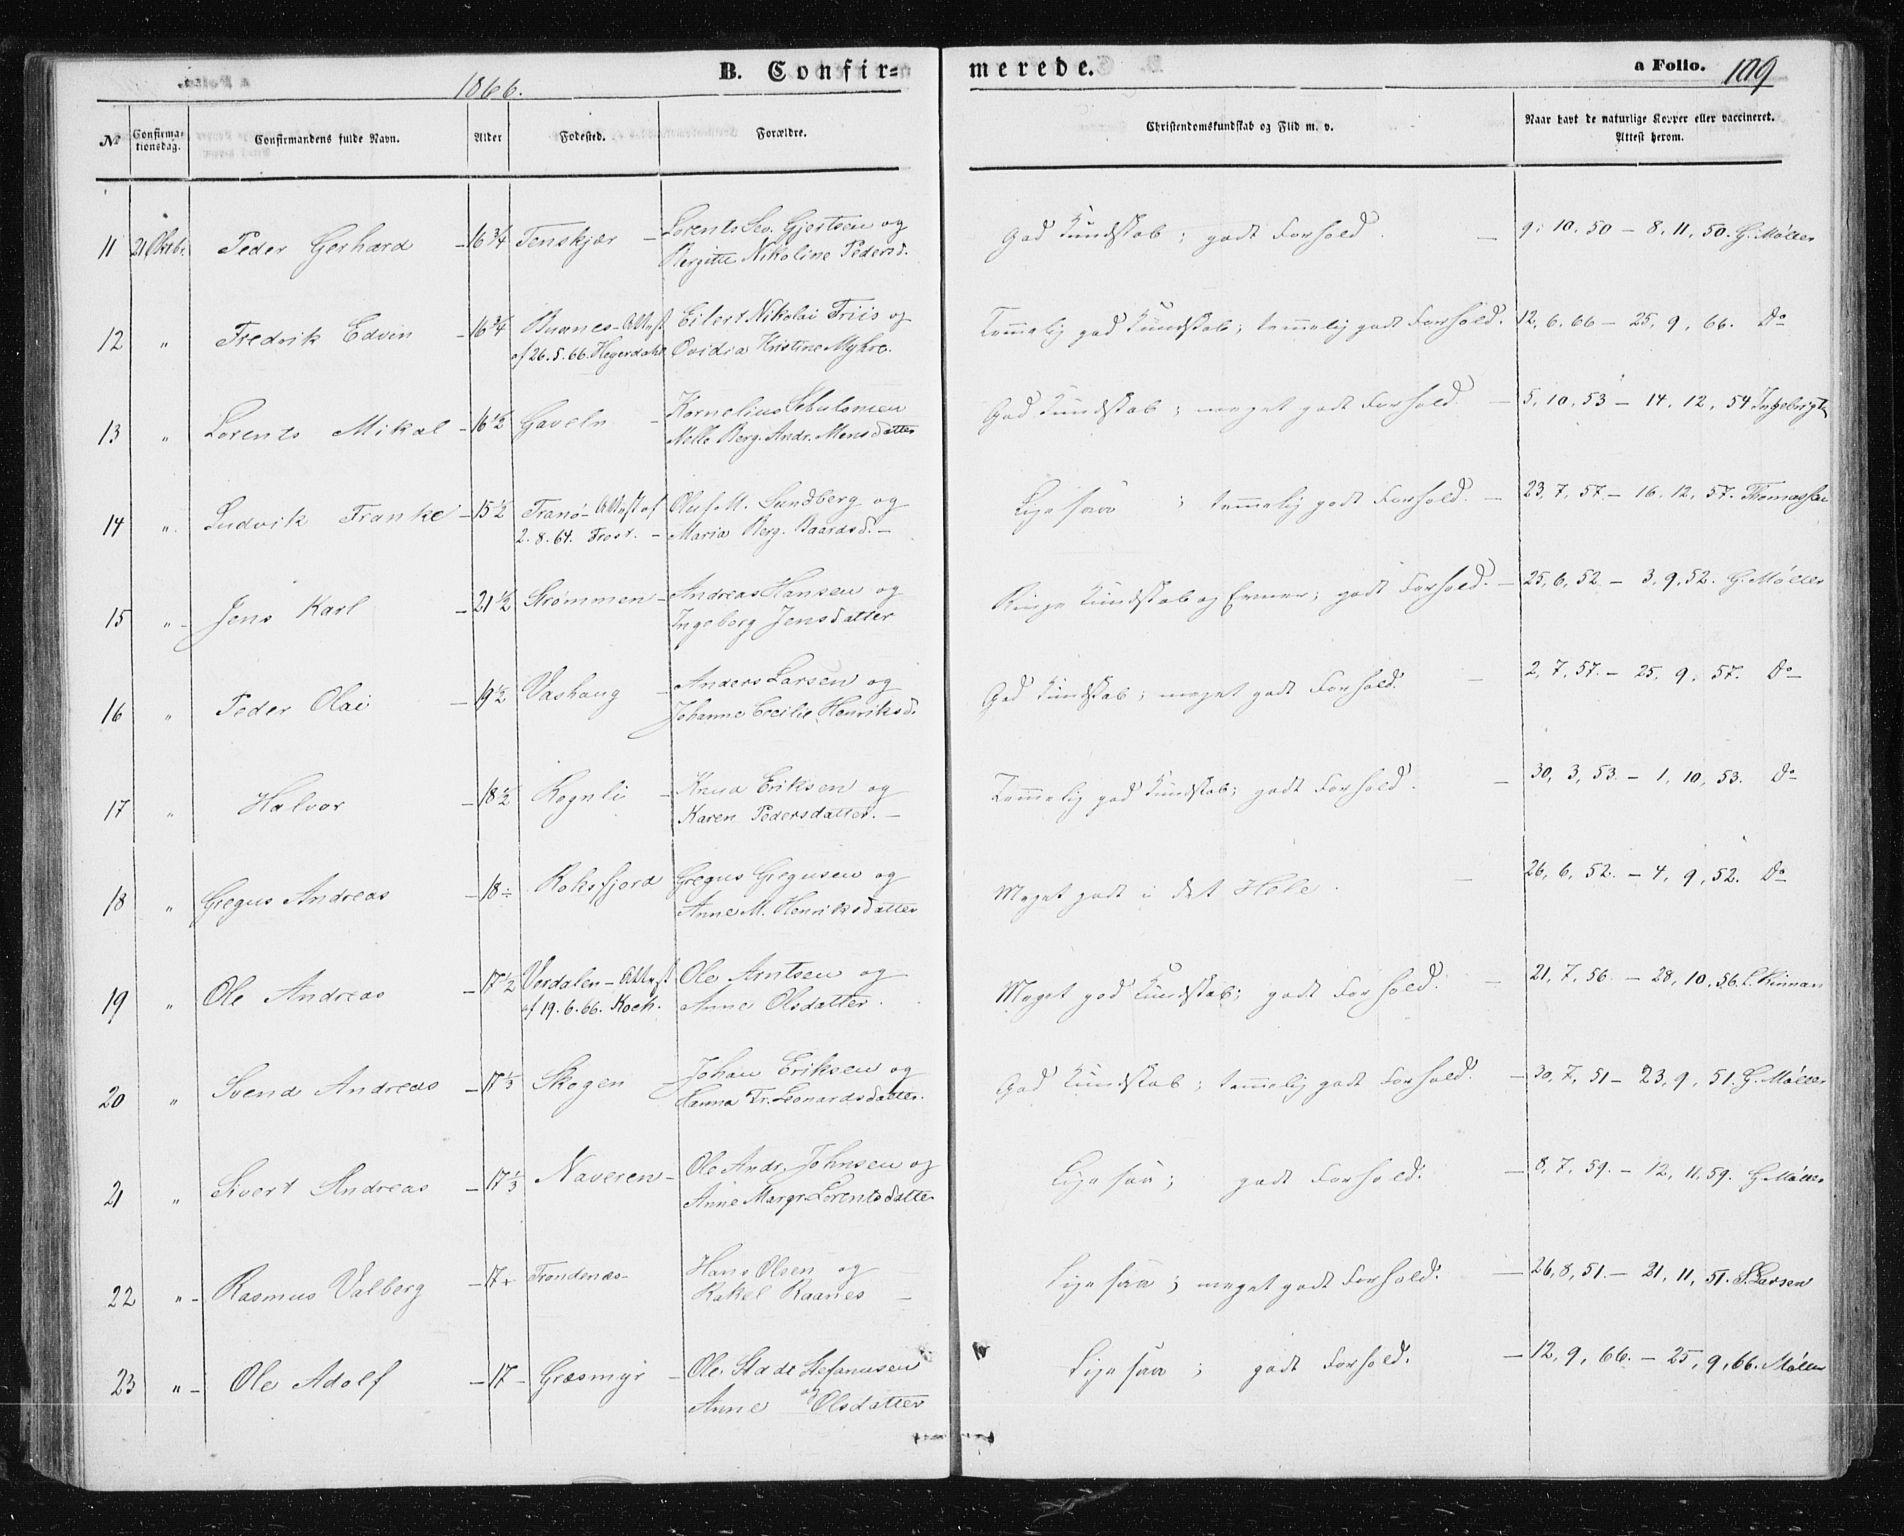 1866.
B. Confir=
merede.
a Folio. 109
№ Confirmationsdag. Confirmandens fulde Navn. Alder Fødested. Forældre. Christendomskundskab og Flid m. v. Naar havt de naturlige Kopper eller vaccineret. Attest herom.
11 21 Oktbr. Peder Gerhard – 16 3/4 Tenskjær – Lorents Sev. Gjertsen og
Bergitte Nikoline Pedersd.
God Kundskab; godt Forhold. – 9. 10. 50 – 8. 11. 50. G. Møller
12 " Fredrik Edvin – 16 3/4 Buanes – Attest Eilert Nikolai Friis og
af 26. 5. 66. Hegerdahl Ovidia Kristine Myhre.
Temmelig god Kundskab; temmelig godt Forhold. 12. 6. 66 – 25. 9. 66. Do
13 " Lorents Mikal – 16 1/2 Gaveln – Kornelius Sebulonsen
Nille Berg. Andr. Monsdatter
God Kundskab; meget godt Forhold. – 5. 10. 53 – 14. 12. 54 Ingebrigts
14 " Ludvik Franke – 15 1/2 Tranø – Attest af Oluf M. Sundberg og
2. 8. 64. Frost. – Maria Berg. Baardsd. –
Lige saa; temmelig godt Forhold. – 23. 7. 57 – 16. 12. 57. Thomassen
15 " – Jens Karl – 21 1/2 Strømmen – Andreas Hansen og
Ingeborg Jensdatter
Ringe Kundskab og Evner; godt Forhold. – 25. 6. 52. – 3. 9. 52. G. Møller
16 " Peder Olai – 19 1/2 Vashaug – Anders Larsen og
Johanne Cecilie Henriksd.
God Kundskab; meget godt Forhold. – 2. 7. 57. – 25. 9. 57. Do
17 " Halvor – 18 1/2 Rognli – Knud Eriksen og
Karen Pedersdatter. –
Temmelig god Kundskab; godt Forhold. – 30. 3. 53. – 1. 10. 53. Do
18 " Gregus Andreas – 18 ÷ Roksfjord Gregus Gregusen og
Anne M. Henriksdatter
Meget godt i det Hele. – 26. 6. 52. – 4. 9. 52. Do
19 " Ole Andreas – 17 1/2 Verdalen – Attest Ole Arntsen og
af 19. 6. 66. Koch. Anne Olsdatter.
Meget god Kundskab; godt Forhold. – 21. 7. 56. – 28. 10. 56. L. Rinnan
20 " Svend Andreas – 17 1/3 Skogen – Johan Eriksen og
Hanna Fr. Leonardsdatter.
God Kundskab; temmelig godt Forhold. – 30. 7. 51 – 23. 9. 51. G. Møller
21 " Sivert Andreas – 17 1/3 Naveren – Ole Andr. Johnsen og
Anne Margr. Lorentsdatter
Lige saa; godt Forhold. – 8. 7. 59. – 12. 11. 59. G Møller
22 " – Rasmus Valberg – 17 + Trondenæs – Hans Olsen og
Rakel Raanes –
Lige saa; meget godt Forhold. – 26. 8. 51. – 21. 11. 51. S. Larsen
23 " – Ole Adolf – 17 – Græsmyr – Ole Stadt Stefanusen
og
Anne Olsdatter
Lige saa; godt Forhold. – 12. 9. 66. – 25. 9. 66. Møller